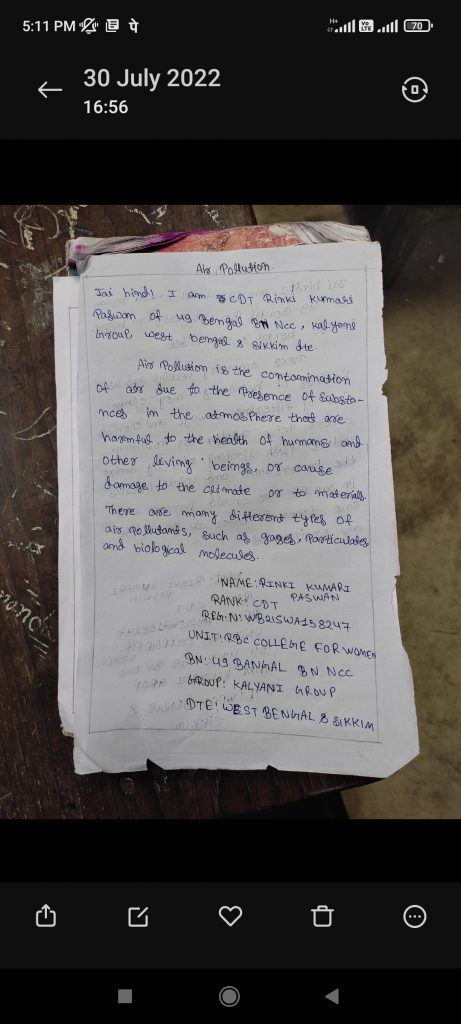 5:11 PM
H+ Vo LTE 70
30 July 2022
16:56
Air Pollution
Jai hind! I am CDT Rinki Kumari
Paswan of 49 Bengal BN NCC, Kalyani
Group, west bengal & sikkim dte.
Air Pollution is the contamination
of air due to the Presence of Substa-
nces in the atmosphere that are
harmful to the health of humans and
other living beings, or cause
damage to the climate or to materials.
There are many different types of
air pollutants, such as gases, Particulates
and biological molecules.
NAME: RINKI KUMARI
PASWAN
RANK: CDT
REG.N: WB21SWA158247
UNIT: RBC COLLEGE FOR WOMEN
BN: 49 BANGAL BN NCC
GROUP: KALYANI GROUP
DTE: WEST BENGAL & SIKKIM